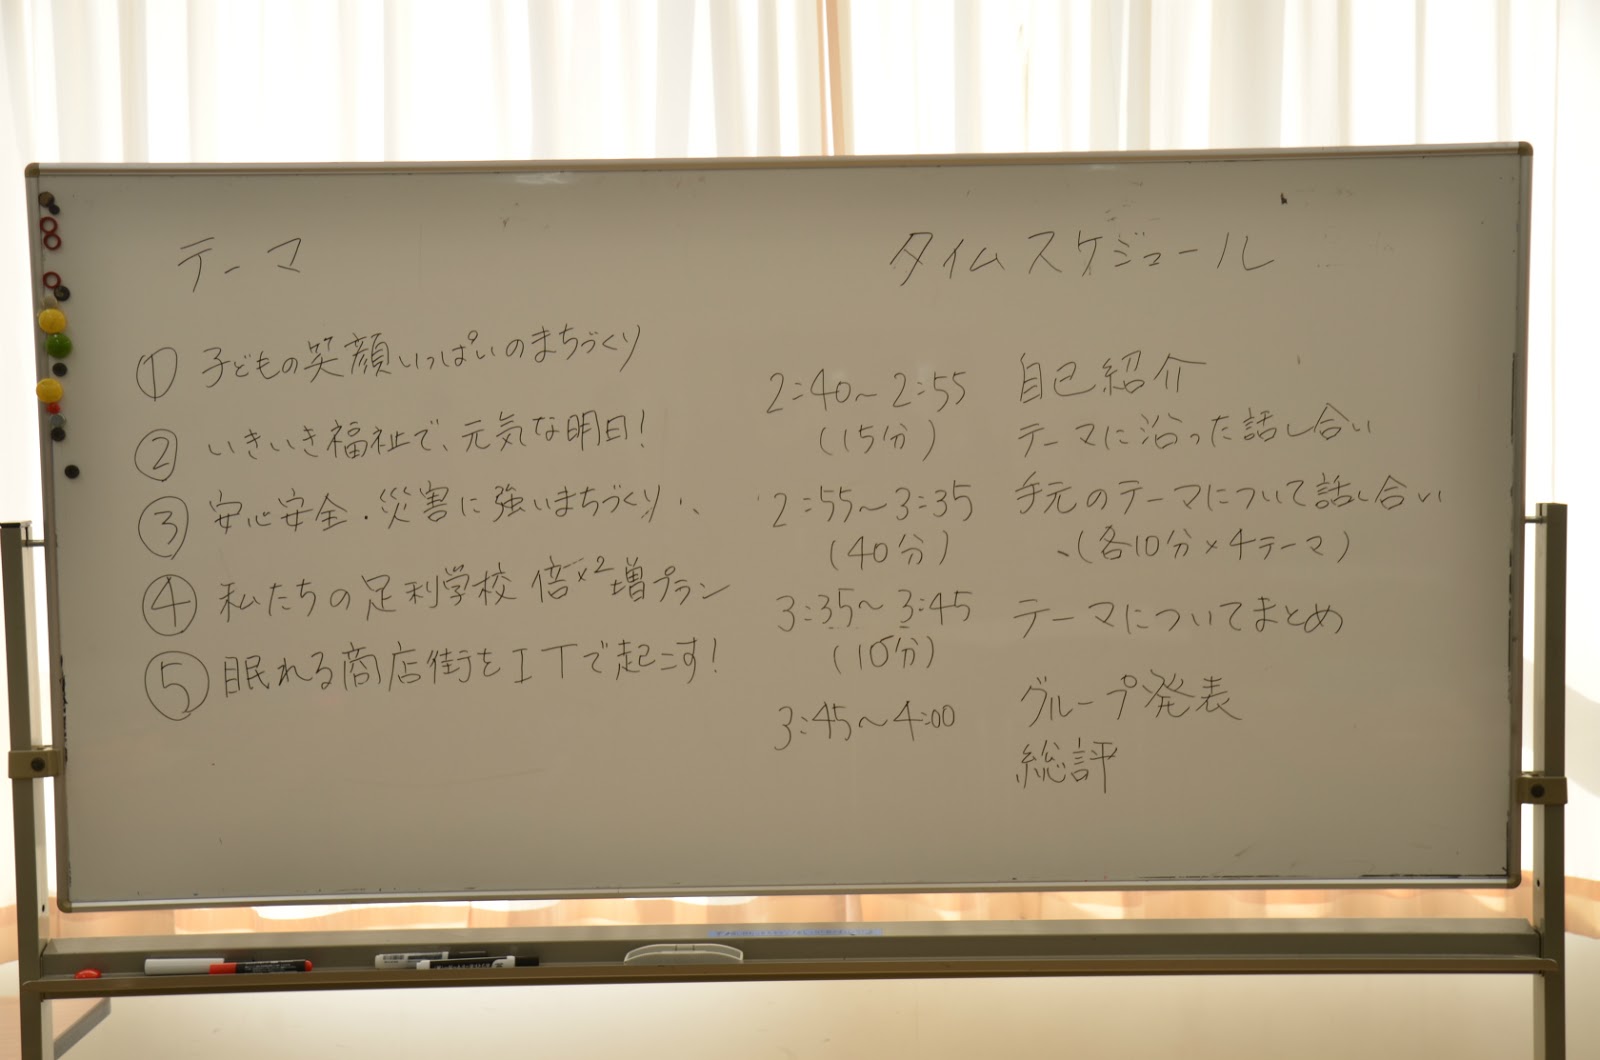 テーマ
① 子どもの笑顔いっぱいのまちづくり
② いきいき福祉で、元気な明日！
③ 安心安全・災害に強いまちづくり
④ 私たちの足利学校 倍×2増プラン
⑤ 眠れる商店街をITで起こす！
タイムスケジュール
2:40～2:55 自己紹介
(15分) テーマに沿った話し合い
2:55～3:35 手元のテーマについて話し合い
(40分) (各10分×4テーマ)
3:35～3:45 テーマについてまとめ
(10分)
3:45～4:00 グループ発表
総評